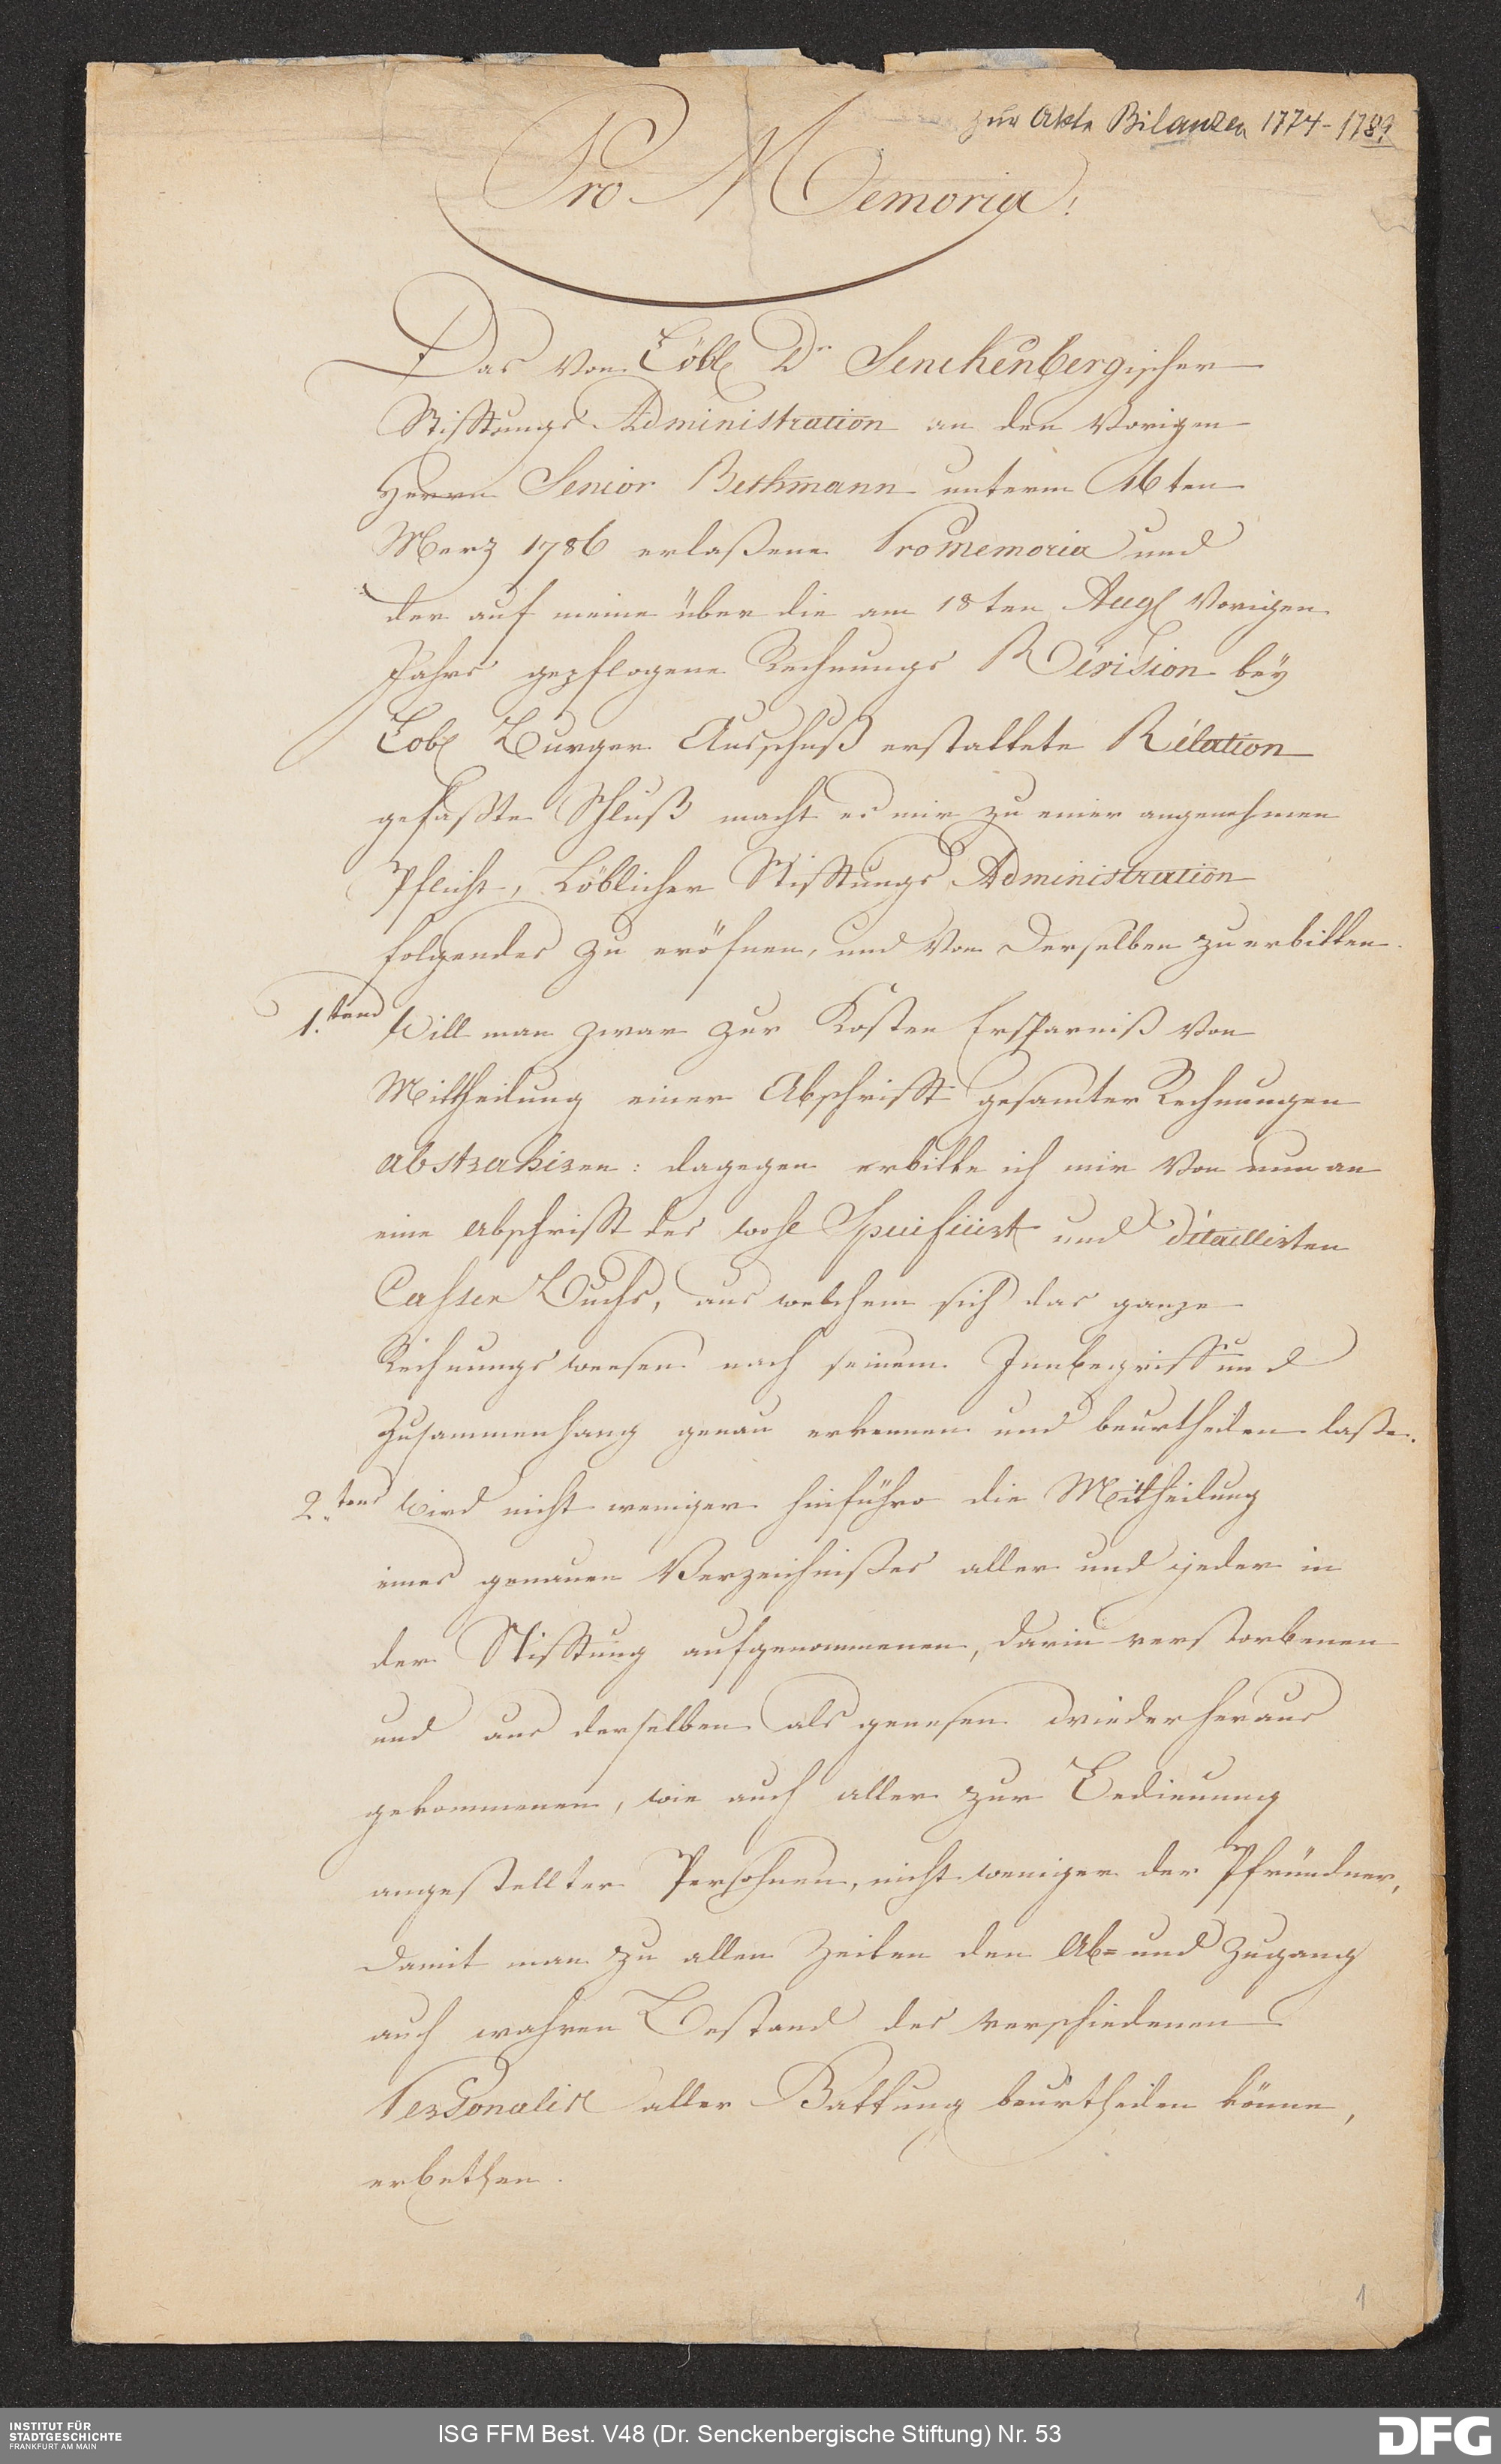 zur Akte Bilanzen 1774-1789
Pro Memoria!
Das von Löbl Dr Senckenbergischer
Stifftungs Administration an den Vorigen
Herrn Senior Bethmann unterm 16ten
Merz 1786 erlaßene Promemoria und
der auf meine über die am 18ten Aug Vorigen
Jahrs gepflogene Rechnungs Révision bey
Lobl Burger Ausschuß erstattete Rélation
gefaßte Schluß macht es mir zu einer angenehmen
Pflicht, Löblicher Stifftungs Administration
folgendes zu eröfnen, und Von Derselben zu erbitten.
1.tens Will man zwar zur Kosten Ersparniß Von
Mittheilung einer Abschrifft gesamter Rechnungen
abstrahiren: dagegen erbitte ich mir Von nun an
eine Abschrifft des wohl Specificirt und détaillirten
Cassen Buchs, aus welchem sich das ganze
Rechnungsweesen nach seinem Innbegriff und
Zusammenhang genau erkennen und beurtheilen laße.
2.tens Wird nicht weniger hinführo die Mittheilung
eines genauen Verzeichnißes aller und jeder in
der Stifftung aufgenommenen, darin verstorbenen
und aus derselben als genesen wieder heraus
gekommenen, wie auch aller zur Bedienung
angestellter Persohnen, nicht weniger der Pfründner,
damit man zu allen Zeiten den Ab= und Zugang
auch wahren Bestand des verschiedenen
Personalis aller Gattung beurtheilen könne,
erbethen.
1
INSTITUT FÜR
STADTGESCHICHTE
FRANKFURT AM MAIN
ISG FFM Best. V48 (Dr. Senckenbergische Stiftung) Nr. 53
DFG